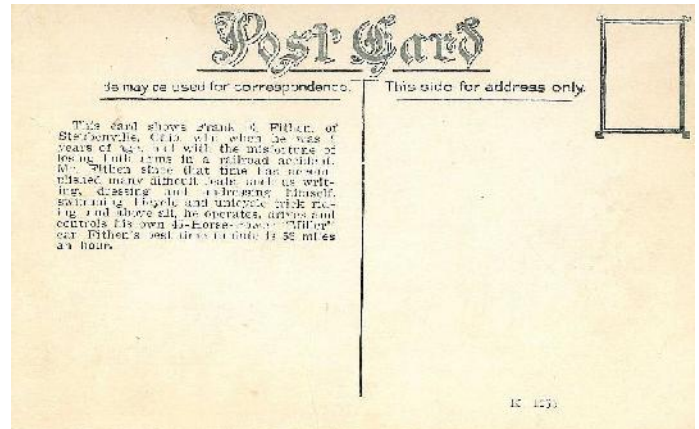 Post Card
may be used for correspondence.
This side for address only.
This card shows Frank Fithen, of
Steubenville, Ohio, who when he was
years of age, met with the misfortune of
losing both arms in a railroad accident.
Mr. Fithen since that time has accom-
plished many difficult feats such as writ-
ing, dressing and undressing himself,
swimming, bicycle and unicycle trick rid-
ing and above all, he operates, drives and
controls his own 45-Horse-power "Miller"
car. Fithen's best time to date is 56 miles
an hour.